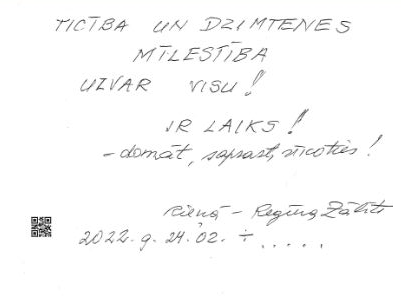 TICĪBA UN DZIMTENES
MĪLESTĪBA
UZVAR VISU!
IR LAIKS!
- domāt, saprast, rīkoties!
Rienā - Regīna Zālīte
2022. g. 24. 02. ÷ .....